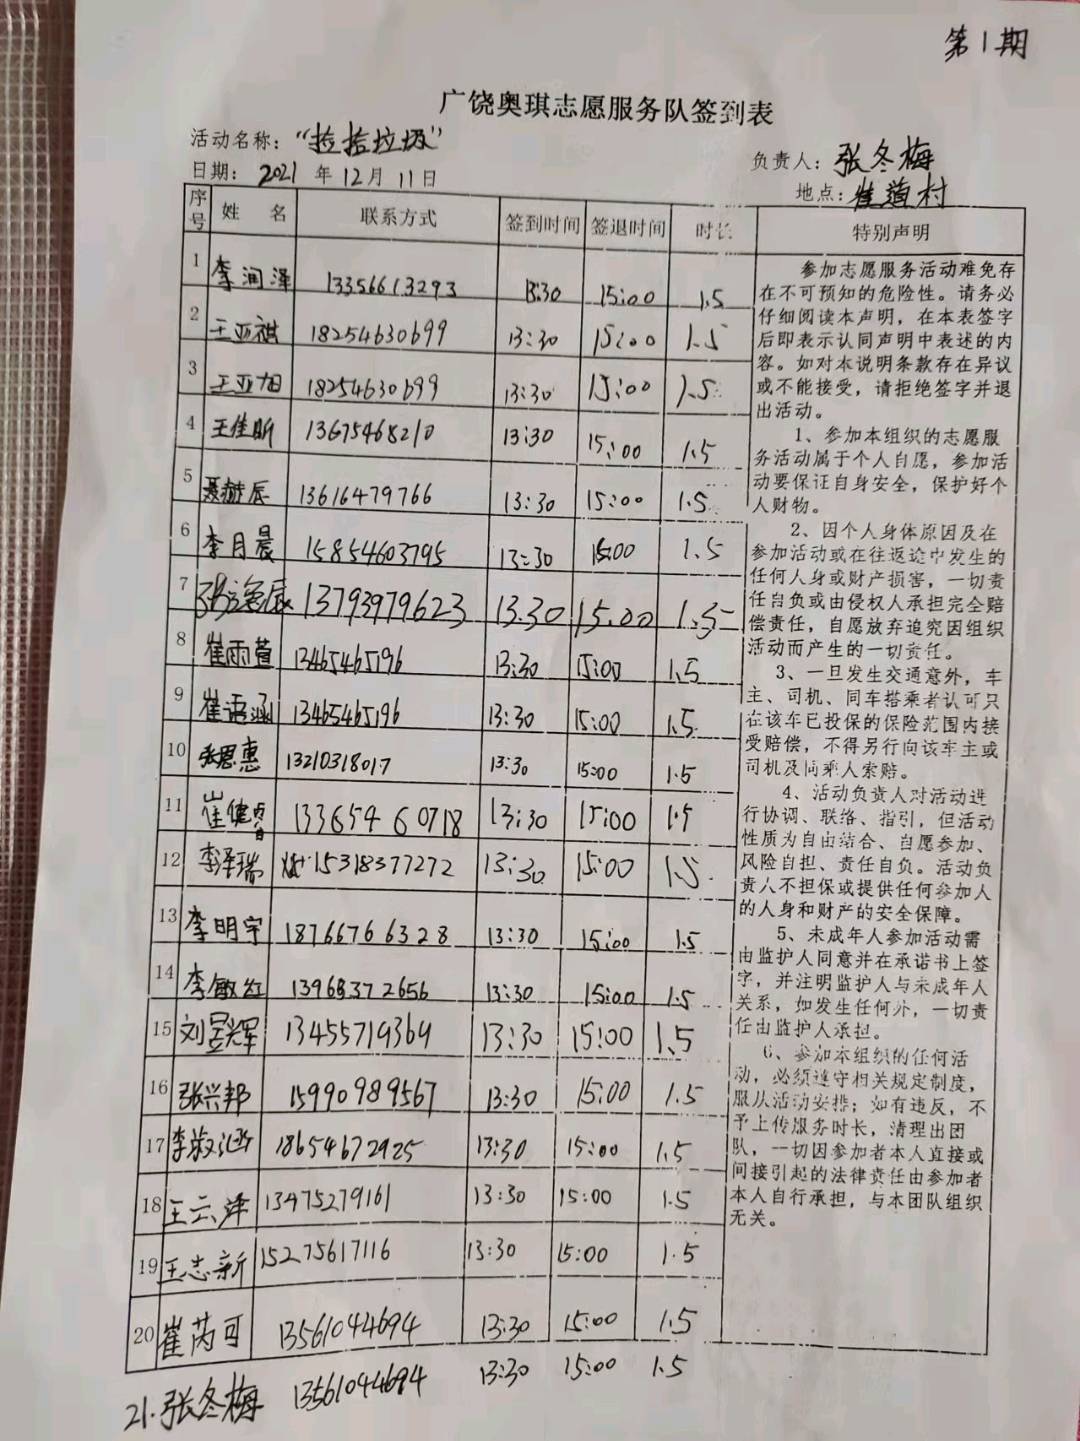 第1期
广饶奥琪志愿服务队签到表
活动名称：“捡拾垃圾”
负责人：张冬梅
日期：2021年12月11日
地点：崔道村
序号 姓名 联系方式 签到时间 签退时间 时长 特别声明
1 李润泽 13356613293 13:30 15:00 1.5
2 王亚祺 18254630699 13:30 15:00 1.5
3 王亚旭 18254630699 13:30 15:00 1.5
4 王佳昕 13675468210 13:30 15:00 1.5
5 聂赫辰 13616479766 13:30 15:00 1.5
6 李月晨 15854603795 13:30 15:00 1.5
7 13793979623 13.30 15.00 1.5
8 崔雨萱 13465465196 13:30 15:00 1.5
9 崔语涵 13465465196 13:30 15:00 1.5
10 张恩惠 13210318017 13:30 15:00 1.5
11 崔健 13365460718 13:30 15:00 1.5
12 李泽瑞 15318377272 13:30 15:00 1.5
13 李明宇 18766766328 13:30 15:00 1.5
14 李敏红 13968372656 13:30 15:00 1.5
15 刘昱辉 13455719369 13:30 15:00 1.5
16 张兴邦 15990989567 13:30 15:00 1.5
17 李 18654672925 13:30 15:00 1.5
18 王云泽 13475279161 13:30 15:00 1.5
19 王志新 15275617116 13:30 15:00 1.5
20 崔芮可 13561044694 13:30 15:00 1.5
21.张冬梅 13561044694 13:30 15:00 1.5
参加志愿服务活动难免存
在不可预知的危险性。请务必
仔细阅读本声明，在本表签字
后即表示认同声明中表述的内
容。如对本说明条款存在异议
或不能接受，请拒绝签字并退
出活动。
1、参加本组织的志愿服
务活动属于个人自愿，参加活
动要保证自身安全，保护好个
人财物。
2、因个人身体原因及在
参加活动或在往返途中发生的
任何人身或财产损害，一切责
任自负或由侵权人承担完全赔
偿责任，自愿放弃追究因组织
活动而产生的一切责任。
3、一旦发生交通意外，车
主、司机、同车搭乘者认可只
在该车已投保的保险范围内接
受赔偿，不得另行向该车主或
司机及同乘人索赔。
4、活动负责人对活动进
行协调、联络、指引，但活动
性质为自由结合、自愿参加、
风险自担、责任自负。活动负
责人不担保或提供任何参加人
的人身和财产的安全保障。
5、未成年人参加活动需
由监护人同意并在承诺书上签
字，并注明监护人与未成年人
关系，如发生任何外，一切责
任由监护人承担。
6、参加本组织的任何活
动，必须遵守相关规定制度，
服从活动安排；如有违反，不
予上传服务时长，清理出团
队，一切因参加者本人直接或
间接引起的法律责任由参加者
本人自行承担，与本团队组织
无关。